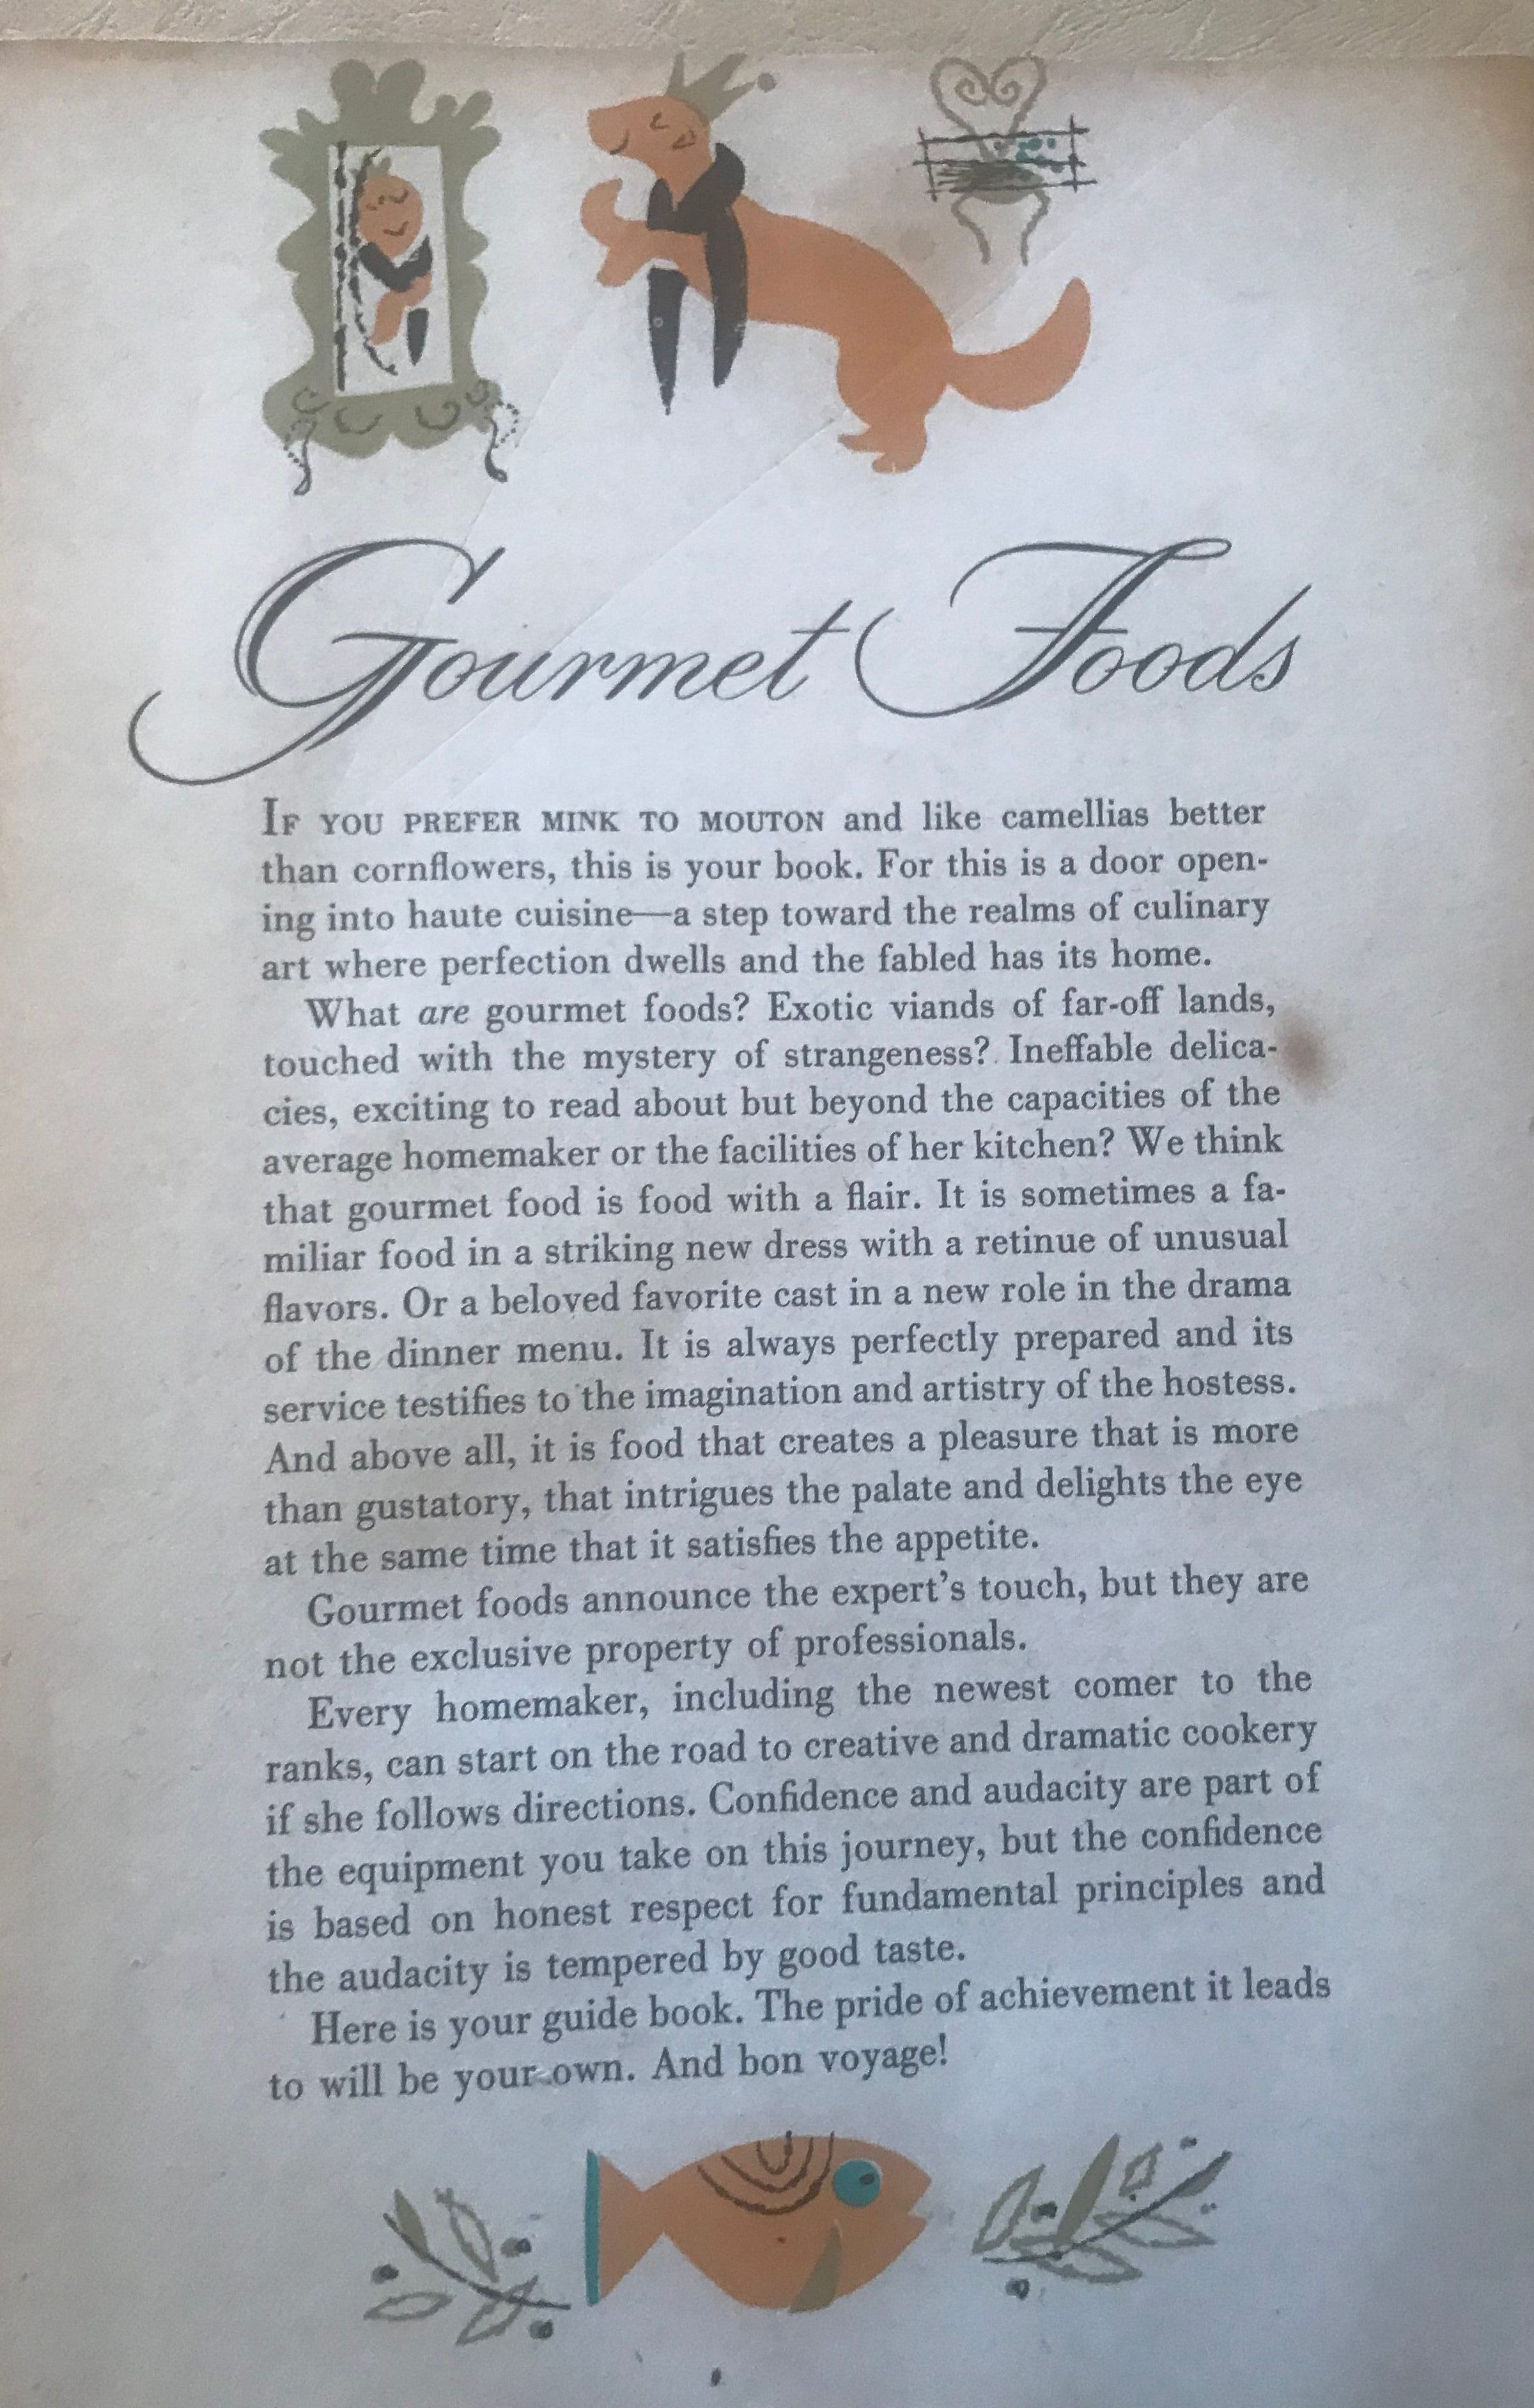 Gourmet Foods
IF YOU PREFER MINK TO MOUTON and like camellias better
than cornflowers, this is your book. For this is a door open-
ing into haute cuisine—a step toward the realms of culinary
art where perfection dwells and the fabled has its home.
What are gourmet foods? Exotic viands of far-off lands,
touched with the mystery of strangeness? Ineffable delica-
cies, exciting to read about but beyond the capacities of the
average homemaker or the facilities of her kitchen? We think
that gourmet food is food with a flair. It is sometimes a fa-
miliar food in a striking new dress with a retinue of unusual
flavors. Or a beloved favorite cast in a new role in the drama
of the dinner menu. It is always perfectly prepared and its
service testifies to the imagination and artistry of the hostess.
And above all, it is food that creates a pleasure that is more
than gustatory, that intrigues the palate and delights the eye
at the same time that it satisfies the appetite.
Gourmet foods announce the expert's touch, but they are
not the exclusive property of professionals.
Every homemaker, including the newest comer to the
ranks, can start on the road to creative and dramatic cookery
if she follows directions. Confidence and audacity are part of
the equipment you take on this journey, but the confidence
is based on honest respect for fundamental principles and
the audacity is tempered by good taste.
Here is your guide book. The pride of achievement it leads
to will be your own. And bon voyage!